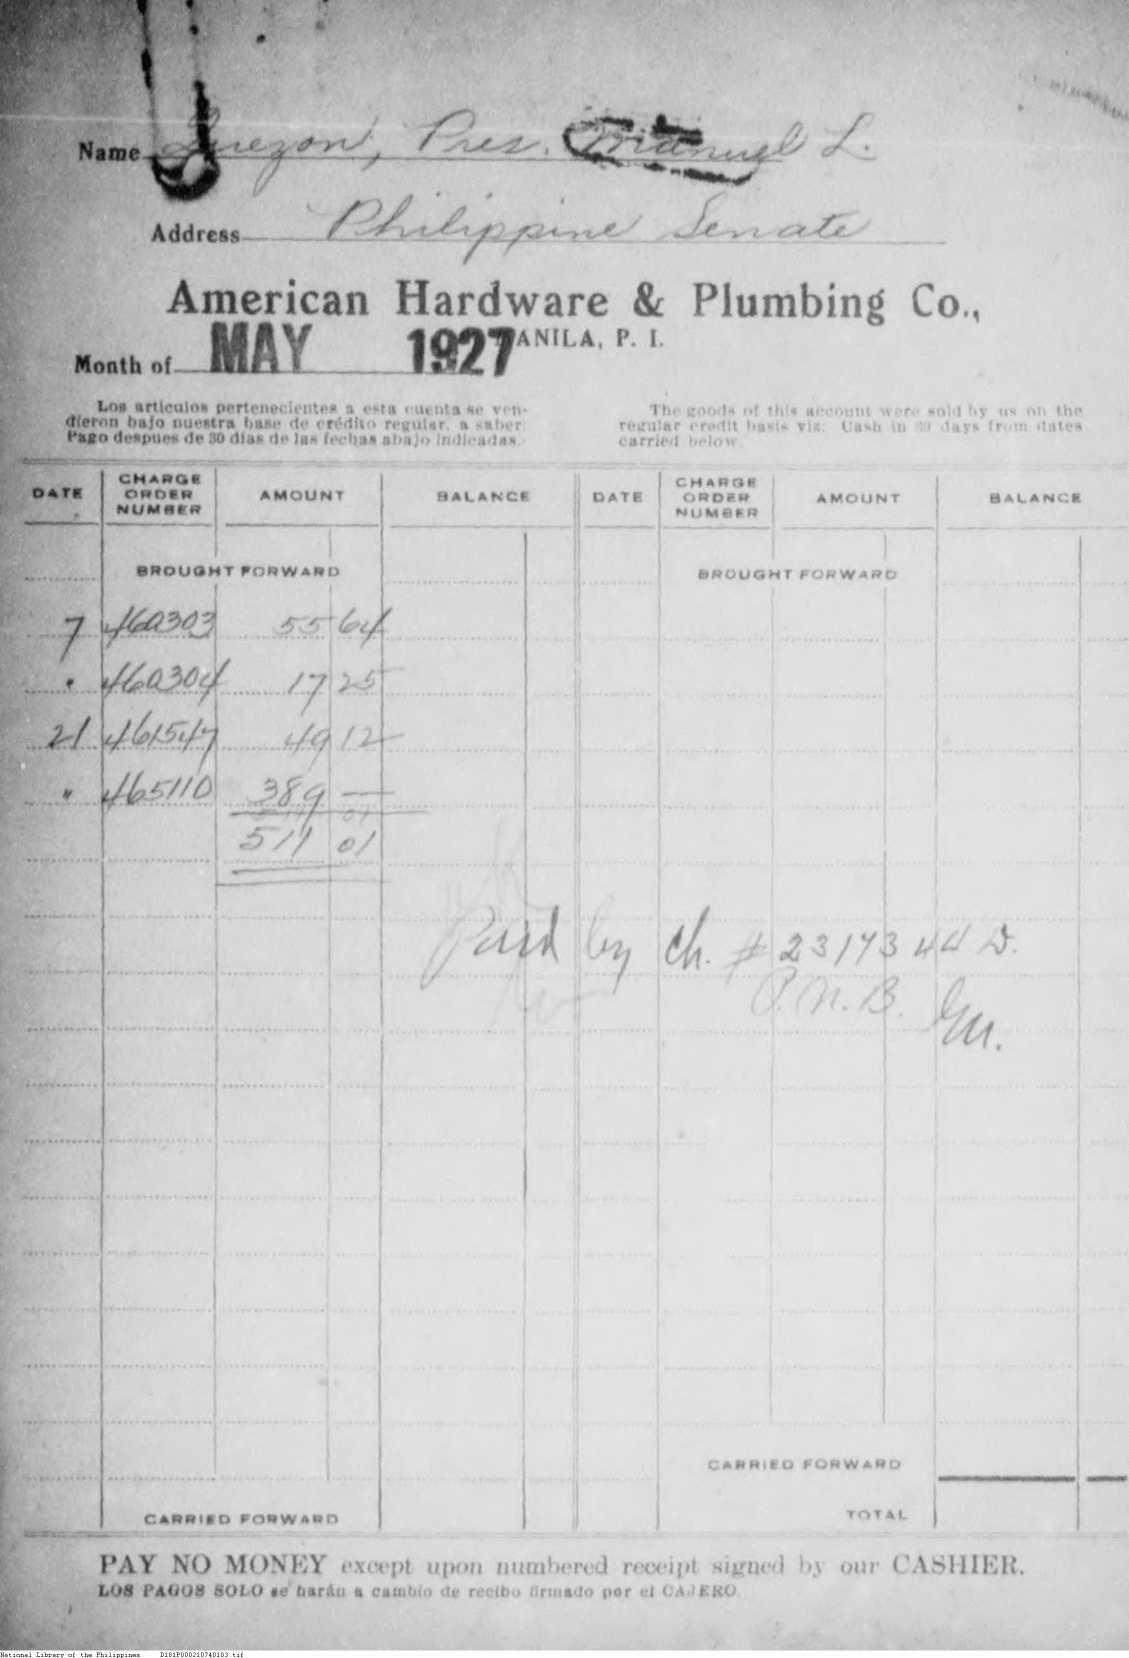 Name Quezon, Pres. Manuel L.
Address Philippine Senate
American Hardware & Plumbing Co.,
MANILA, P. I.
Month of MAY 1927
Los articulos pertenecientes a esta cuenta se ven-
dieron bajo nuestra base de crédito regular, a saber:
Pago despues de 30 dias de las fechas abajo indicadas.
The goods of this account were sold by us on the
regular credit basis viz: Cash in 30 days from dates
carried below.
DATE CHARGE ORDER NUMBER AMOUNT BALANCE DATE CHARGE ORDER NUMBER AMOUNT BALANCE
BROUGHT FORWARD BROUGHT FORWARD
7 460303 55 64
" 460304 17 25
21 461547 49 12
" 465110 389 —
511 01
Paid by ch. # 231734
P.N.B.
CARRIED FORWARD
CARRIED FORWARD TOTAL
PAY NO MONEY except upon numbered receipt signed by our CASHIER.
LOS PAGOS SOLO se harán a cambio de recibo firmado por el CAJERO.
National Library of the Philippines D181P000210740103.tif